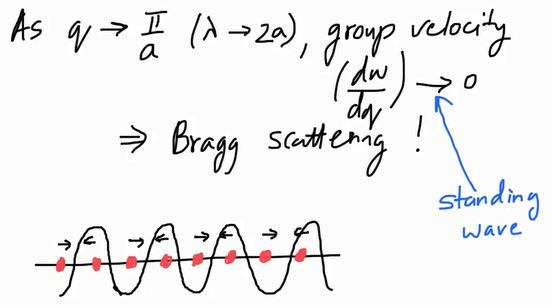 As q → π/a (λ → 2a), group velocity
(dw/dq) → 0
⇒ Bragg scattering !
standing
wave